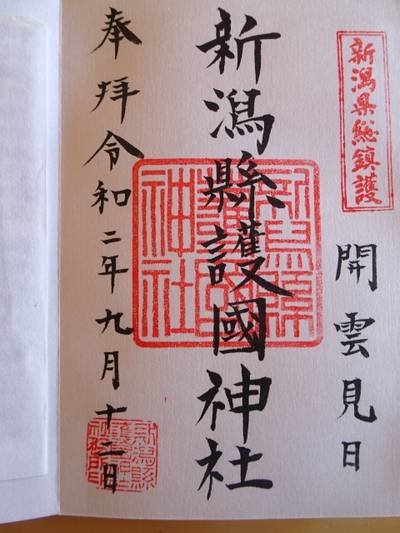 新潟県総鎮護
開雲見日
新潟縣護國神社
奉拝令和二年九月十二日
新潟縣護國神社